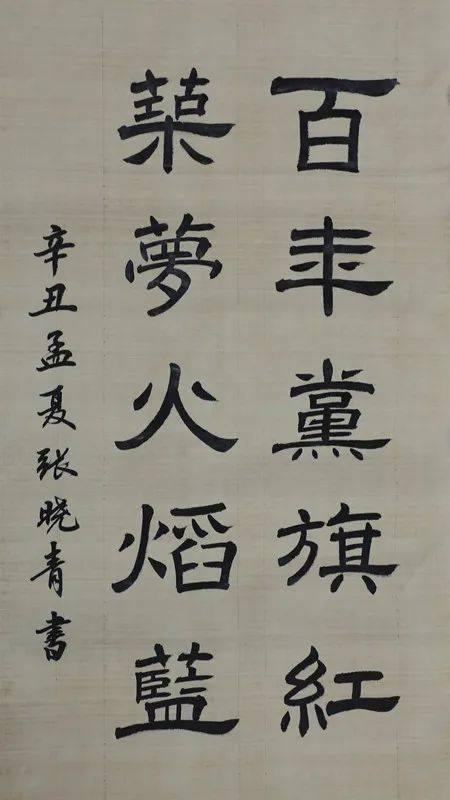 百年黨旗紅
築夢火熖藍
辛丑孟夏張晓青書